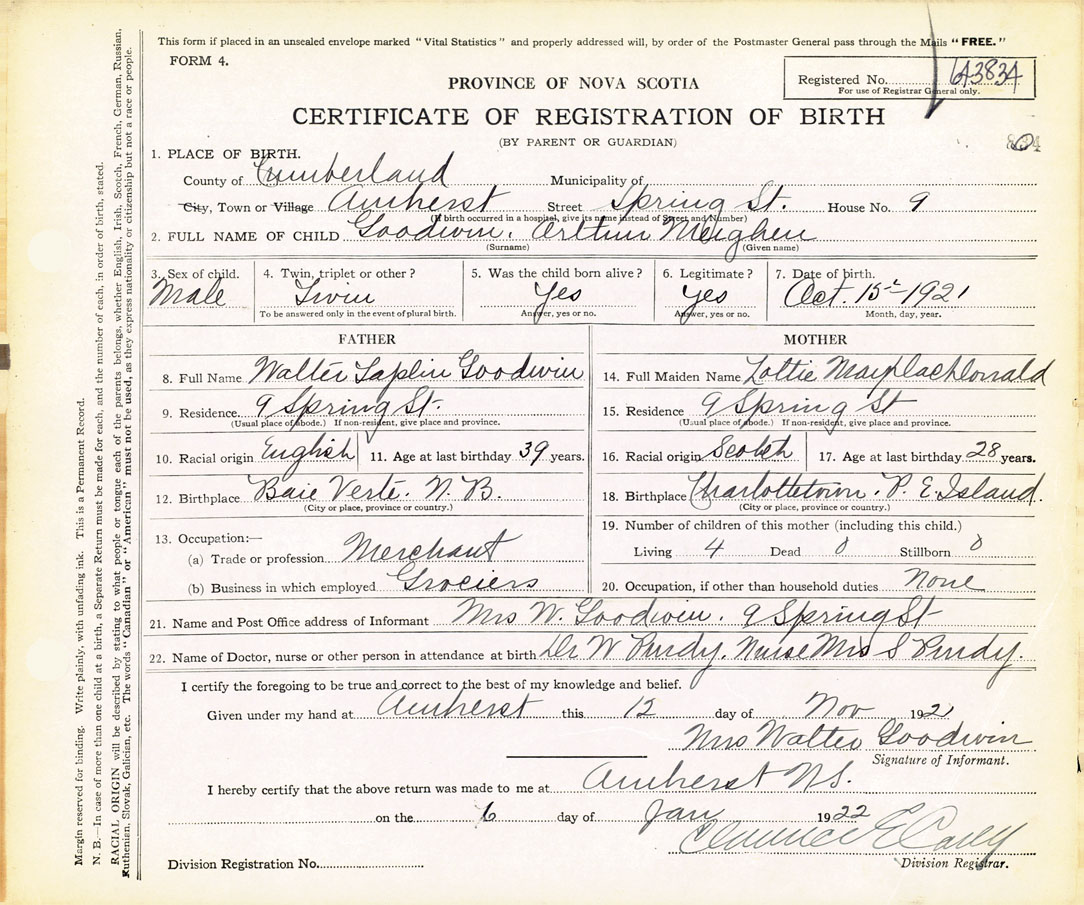 This form if placed in an unsealed envelope marked "Vital Statistics" and properly addressed will, by order of the Postmaster General pass through the Mails "FREE."
FORM 4.
Registered No. 6A383A
For use of Registrar General only.
PROVINCE OF NOVA SCOTIA
CERTIFICATE OF REGISTRATION OF BIRTH
(BY PARENT OR GUARDIAN)
1. PLACE OF BIRTH.
County of Cumberland Municipality of
City, Town or Village Amherst Street Spring St. House No. 9
(If birth occurred in a hospital, give its name instead of Street and Number)
2. FULL NAME OF CHILD Goodwin. Arthur Meighen
(Surname) (Given name)
3. Sex of child. 4. Twin, triplet or other? 5. Was the child born alive? 6. Legitimate? 7. Date of birth.
Male Twin Yes Yes Oct. 15 1921
To be answered only in the event of plural birth. Answer, yes or no. Answer, yes or no. Month, day, year.
FATHER MOTHER
8. Full Name Walter Taplin Goodwin 14. Full Maiden Name Lottie May MacDonald
9. Residence. 9 Spring St. 15. Residence 9 Spring St
(Usual place of abode.) If non-resident, give place and province. (Usual place of abode.) If non-resident, give place and province.
10. Racial origin English 11. Age at last birthday 39 years. 16. Racial origin Scotch 17. Age at last birthday 28 years.
12. Birthplace Baie Verte. N. B. 18. Birthplace Charlottetown. P. E. Island.
(City or place, province or country.) (City or place, province or country.)
13. Occupation:— 19. Number of children of this mother (including this child.)
(a) Trade or profession Merchant Living 4 Dead 0 Stillborn 0
(b) Business in which employed Grociers 20. Occupation, if other than household duties None
21. Name and Post Office address of Informant Mrs W. Goodwin. 9 Spring St
22. Name of Doctor, nurse or other person in attendance at birth Dr W Purdy. Nurse Mrs S Purdy.
I certify the foregoing to be true and correct to the best of my knowledge and belief.
Given under my hand at Amherst this 12 day of Nov 1921
Mrs Walter Goodwin
Signature of Informant.
I hereby certify that the above return was made to me at Amherst N.S.
on the 6 day of Jan 1922
Clarence E
Division Registration No. Division Registrar.
Margin reserved for binding. Write plainly, with unfading ink. This is a Permanent Record.
N. B.—In case of more than one child at a birth, a Separate Return must be made for each, and the number of each, in order of birth, stated.
RACIAL ORIGIN will be described by stating to what people or tongue each of the parents belongs, whether English, Irish, Scotch, French, German, Russian,
Ruthenian, Slovak, Galician, etc. The words "Canadian" or "American" must not be used, as they express nationality or citizenship but not a race or people.